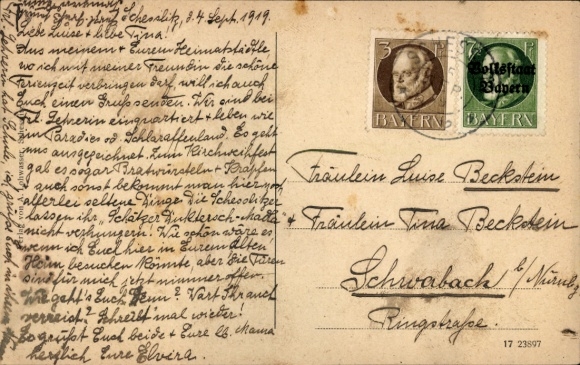 Scheßlitz, d. 4. Sept. 1919.
Liebe Luise & liebe Tina!
Aus meinem & Eurem Heimatstädtle
wo ich mit meiner Freundin die schöne
Ferienzeit verbringen darf, will ich auch
Euch einen Gruß senden. Wir sind bei
Lehrerin einquartiert & leben wie
im Paradies od. Schlaraffenland. Es geht
uns ausgezeichnet. Zum Kirchweihfest
gab es sogar Bratwürsteln & Krapfen
& auch sonst bekommt man hier noch
allerlei seltene Dinge. Die Schesslitzer
lassen ihr,
nicht verhungern! Wie schön wäre es
wenn ich Euch hier in Eurem alten
Heim besuchen könnte, aber die Türen
sind für mich jetzt nimmer offen.
Wie geht's Euch denn? Wart Ihr auch
verreist? Schreibt mal wieder!
Es grüßt Euch beide & Eure lb. Mama
herzlich Eure Elvira.
3 Pf
BAYERN
7½ Pf
Volksstaat
Bayern
BAYERN
Fräulein Luise Beckstein
& Fräulein Tina Beckstein
Schwabach b/Nürnbg
Ringstraße.
17 23897